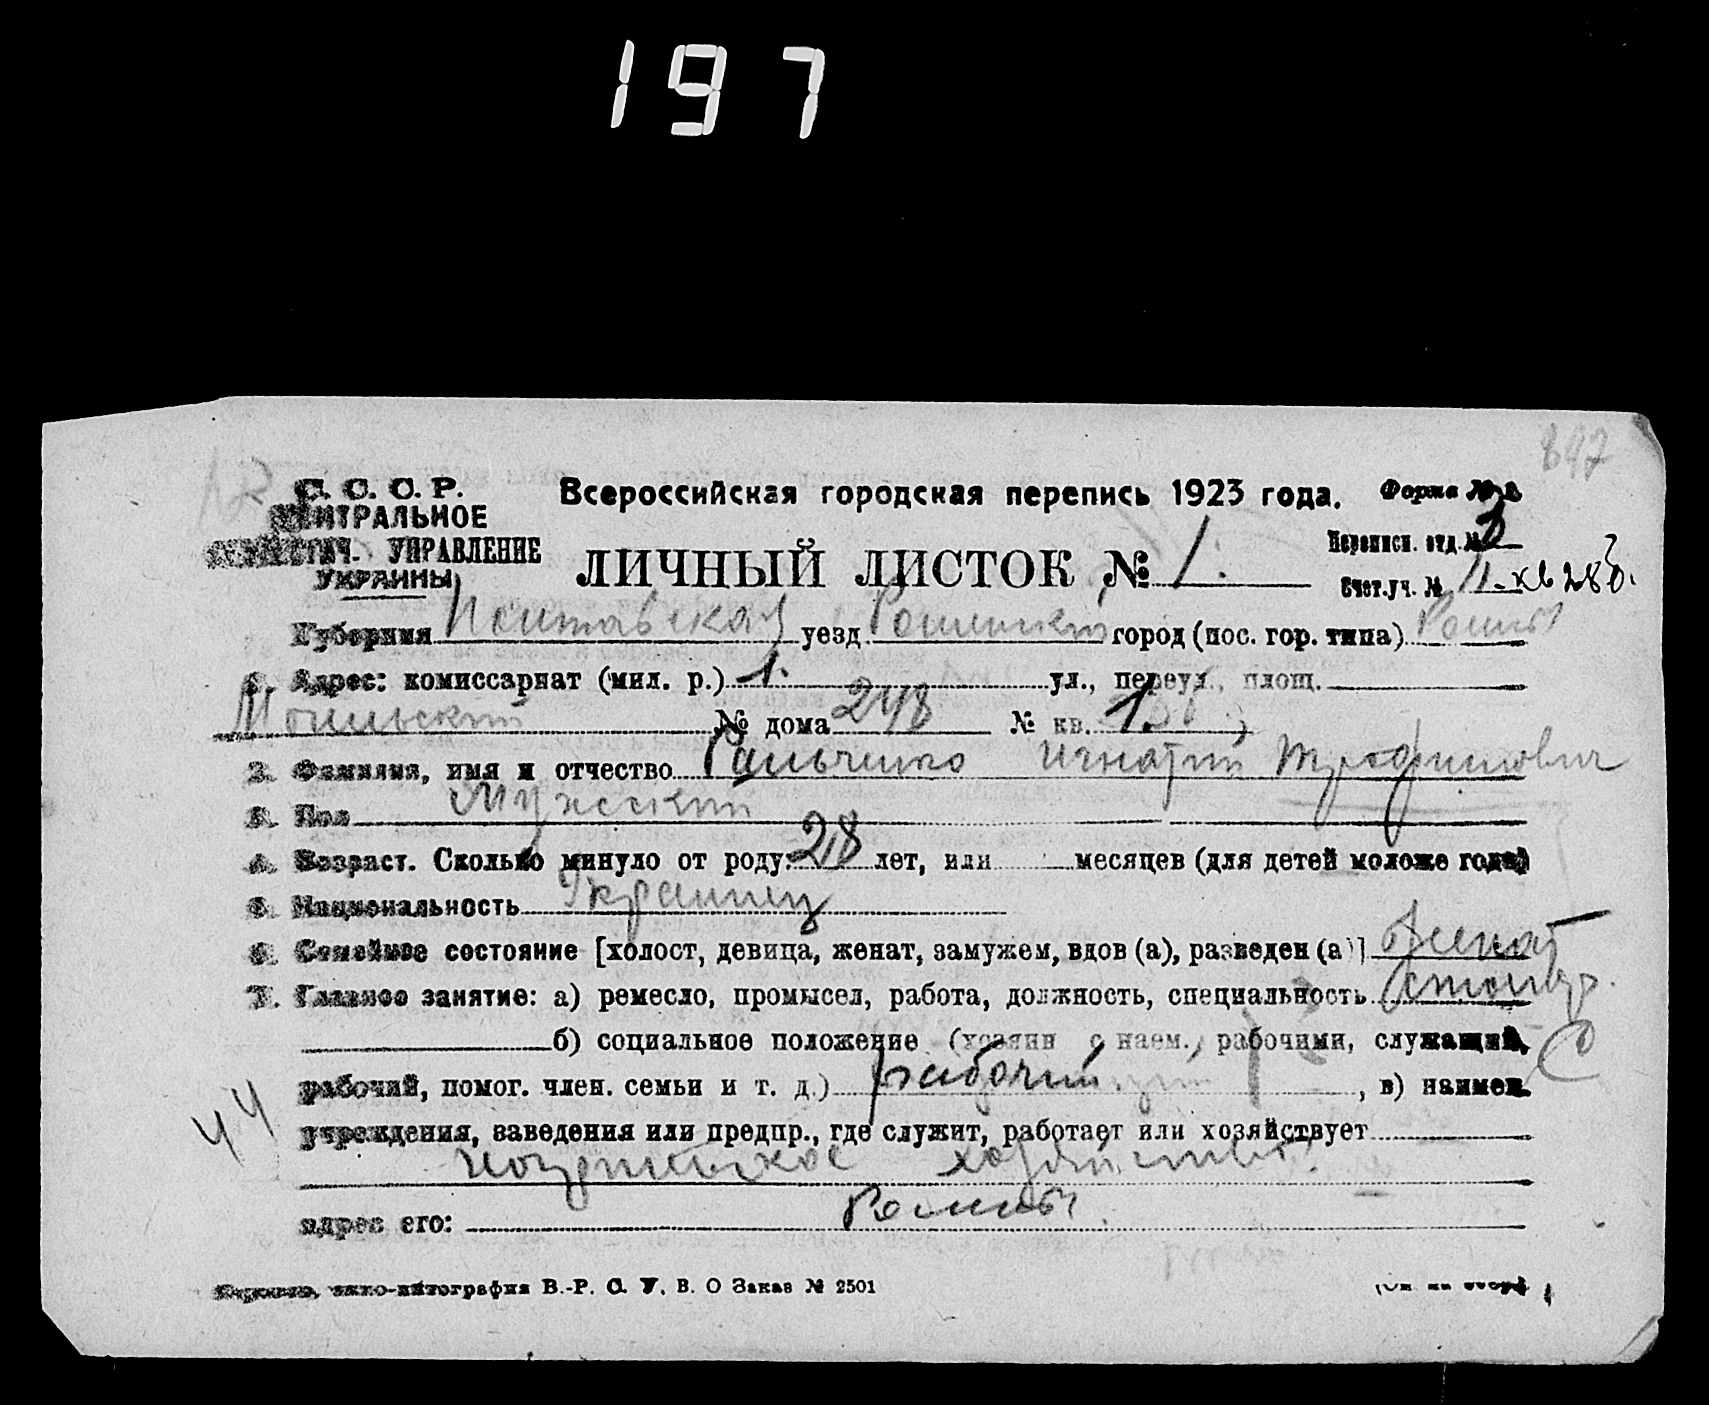 197
847
С. С. С. Р.
ЦЕНТРАЛЬНОЕ
СТАТИСТИЧ. УПРАВЛЕНИЕ
УКРАИНЫ
Всероссийская городская перепись 1923 года.
Форма № 2
ЛИЧНЫЙ ЛИСТОК № 1.
Переписн. отд. № 3
Счет. уч. № 11-
Губерния Полтавская уезд Роменский город (пос. гор. типа) Ромны
1. Адрес: комиссариат (мил. р.) 1. ул., переул., площ.
№ дома 248 № кв. 1.
2. Фамилия, имя и отчество Гальченко Игнатий Трофимович
3. Пол Мужской
4. Возраст. Сколько минуло от роду: 28 лет, или месяцев (для детей моложе года)
5. Национальность Украинец
6. Семейное состояние [холост, девица, женат, замужем, вдов (а), разведен (а)] Женат
7. Главное занятие: а) ремесло, промысел, работа, должность, специальность столяр.
б) социальное положение (хозяин с наем. рабочими, служащий,
рабочий, помог. член. семьи и т. д.) рабочий, в) наимен.
44
учреждения, заведения или предпр., где служит, работает или хозяйствует
хозяйство.
адрес его: Ромны
В.-Р. С. У. В. О Заказ № 2501